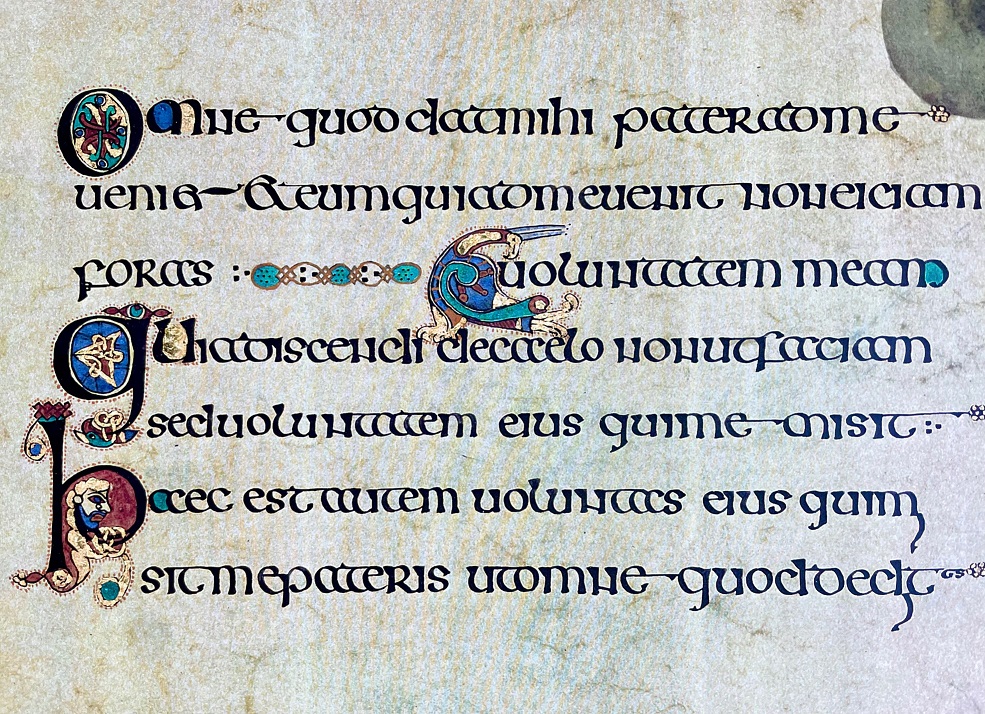 Omne quod datmihi pateradme
ueni& &eumquiadmeuenit noneiciam
foras : uoluntatem meam
Quiadiscendi decaelo nonutfaciam
seduoluntatem eius quime misit :·
haec est autem uoluntas eius quimi
sitmepateris utomne quoddedit